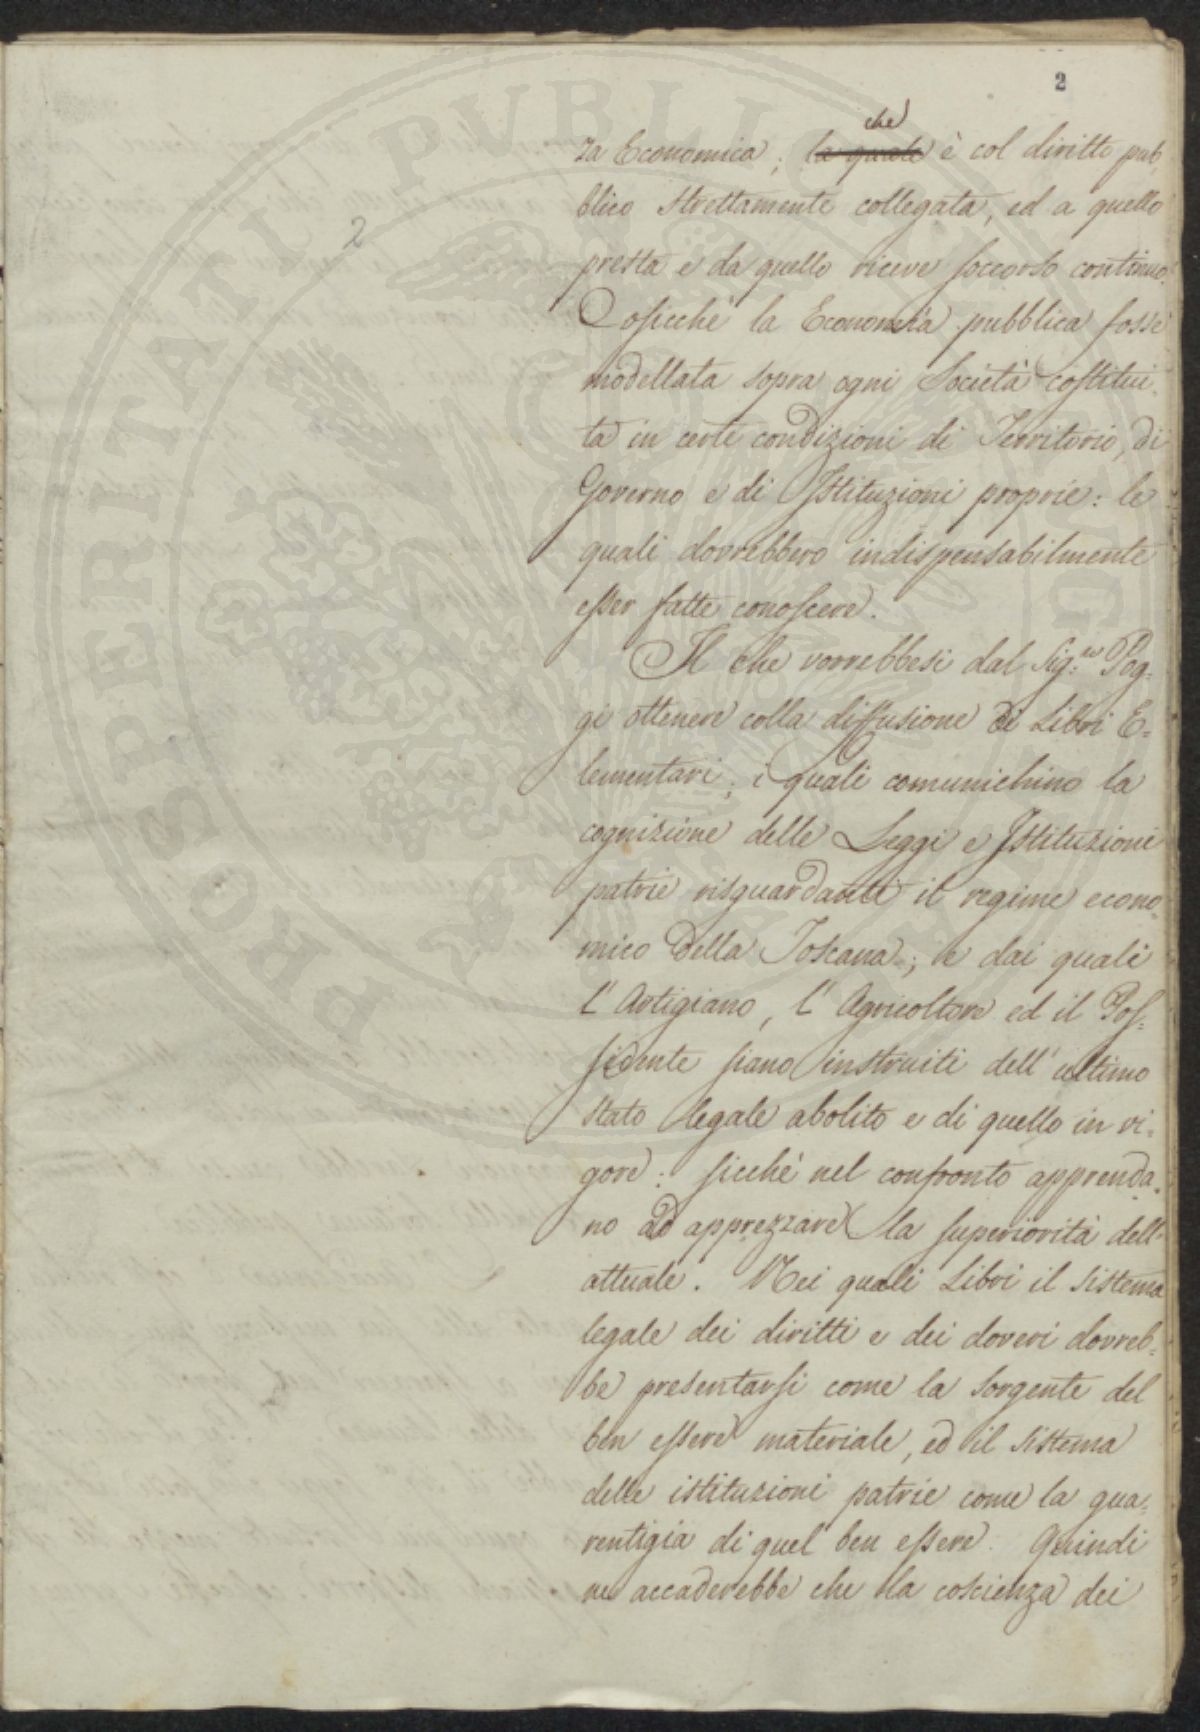 2
che
za Economica; la quale è col diritto pub,
blico strettamente collegata, ed a quello
presta e da quello riceve soccorso continuo.
Cosicchè la Economia pubblica fosse
modellata sopra ogni Società costitui,
ta in certe condizioni di Territorio, di
Governo e di Istituzioni proprie: le
quali dovrebbero indispensabilmente
esser fatte conoscere.
2
Il che vorrebbesi dal Sig.re Pog=
gi ottenere colla diffusione di Libri E=
lementari; i quali comunichino la
cognizione delle Leggi e Istituzioni
patrie risguardanti il regime econo,
mico della Toscana; e dai quali
l'Artigiano, l'Agricoltore ed il Pos=
sidente siano instruiti dell'ultimo
stato legale abolito e di quello in vi=
gore: sicchè nel confronto apprenda,
no ad apprezzare la superiorità dell'
attuale. Nei quali Libri il sistema
legale dei diritti e dei doveri dovreb=
be presentarsi come la sorgente del
ben essere materiale, ed il sistema
delle istituzioni patrie come la gua,
rentigia di quel ben essere. Quindi
ne accaderebbe che la coscienza dei
PROSPERITATI PVBLICAE AVGENDAE